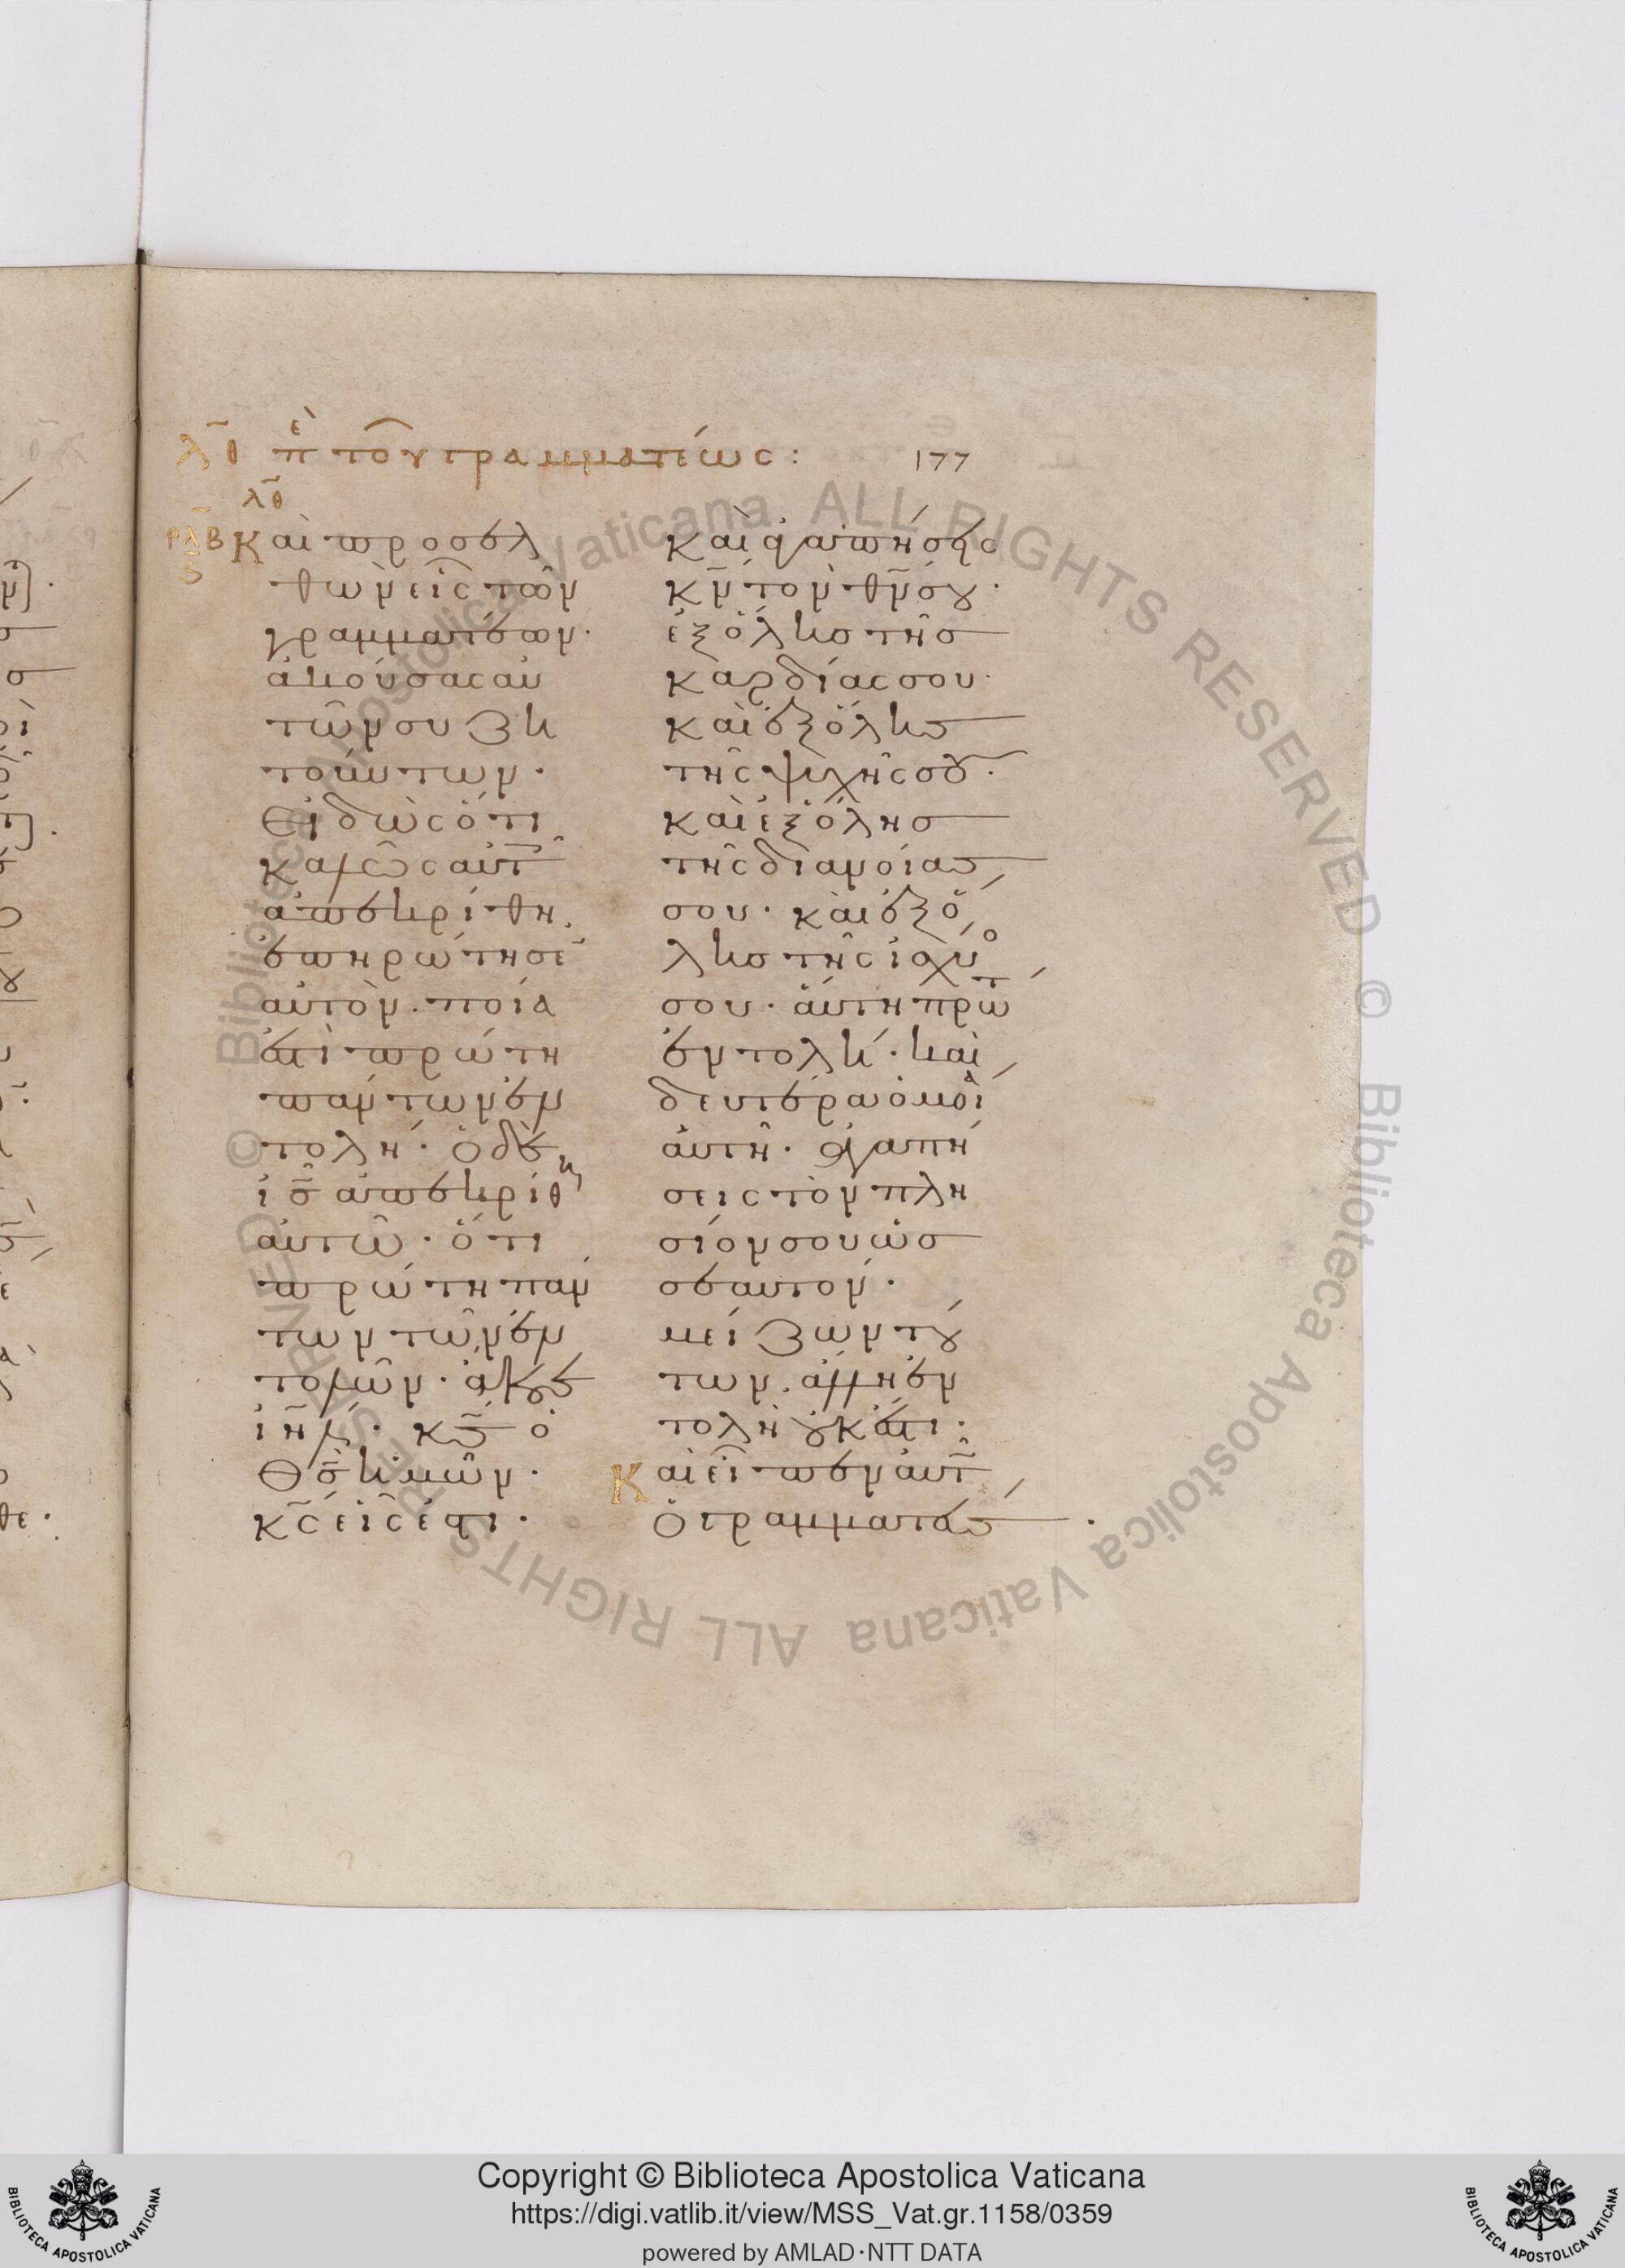 λ̅θ πὲ τοῦ γραμματέως:
177
λ̅θ
ρλ̅β
ς
Καὶ προσελ
θὼν εἷς τῶν
γραμματέων·
ἀκούσας αὐ
τῶν συζη
τούντων·
Εἰδὼς ὅτι
καλῶς αὐτ̅
ἀπεκρίθη,
ἐπηρώτησε
αὐτὸν· ποία
ἐστὶ πρώτη
πάντων ἐν
τολή· ὁ δὲ
ι̅σ̅ ἀπεκρίθη
αὐτῶ· ὅτι
πρώτη πάν
των τῶν ἐν
τολῶν· ἄκουε
ιη̅λ· κ̅σ̅ ὁ
θ̅σ̅ ἡμῶν·
κ̅ς̅ εἷς ἐστι·
καὶ ἀγαπήσεις
κ̅ν̅ τὸν θ̅ν̅ σου·
ἐξ ὅλης τῆς
καρδίας σου·
καὶ ἐξ ὅλης
τῆς ψυχῆς σου·
καὶ ἐξ ὅλης
τῆς διανοίας
σου· καὶ ἐξ ὅ
λης τῆς ἰσχύο
σου· αὕτη πρώτ
ἐντολή· καὶ
δευτέρα ὁμοί
αὐτῆ· ἀγαπή
σεις τὸν πλη
σίον σου ὡς
σεαυτόν·
μείζων τού
των ἄλλη ἐν
τολὴ οὐκ ἔστι·
Καὶ εἶπεν αὐτ̅
ὁ γραμματεύς·
Copyright © Biblioteca Apostolica Vaticana
https://digi.vatlib.it/view/MSS_Vat.gr.1158/0359
powered by AMLAD·NTT DATA
BIBLIOTECA APOSTOLICA VATICANA
BIBLIOTECA APOSTOLICA VATICANA